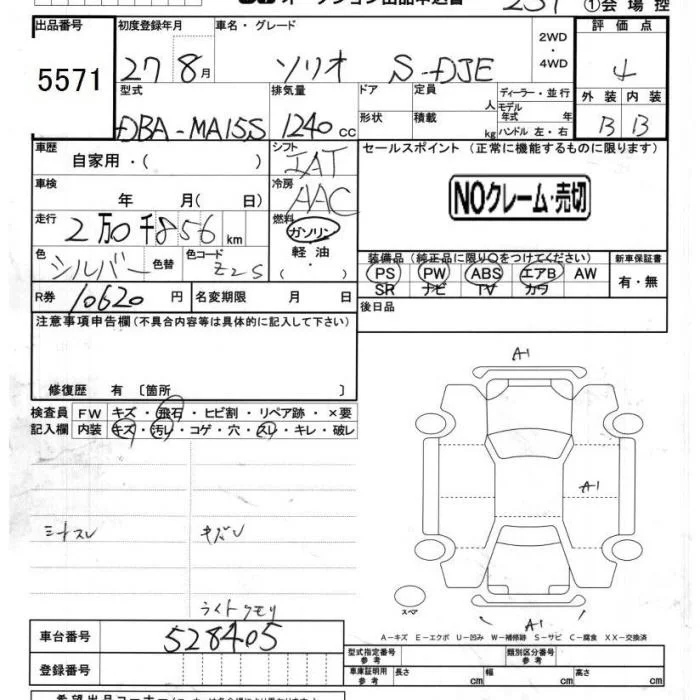 出品番号 初度登録年月 車名・グレード 2WD 評価点
5571 27 8月 ソリオ S-DJE ・ 4
4WD
型式 排気量 ドア 定員 ディーラー・並行 外装 内装
人 モデル
DBA-MA15S 1240cc 形状 積載 年式 年 B B
kg ハンドル 左・右
車歴 シフト セールスポイント（正常に機能するものに限ります）
自家用・（ ） IAT
車検 冷房
年 月（ 日） AAC NOクレーム・売切
走行 燃料
2万0千856km ガソリン
色 色替 色コード 軽油 装備品（純正品に限り○をつけてください） 新車保証書
シルバー Z2S （ ・ ） PS PW ABS エアB AW 有・無
SR ナビ TV カワ
R券 10620円 名変期限 月 日 後日品
注意事項申告欄（不具合内容等は具体的に記入して下さい）
A1
修復歴 有 〔箇所 〕
検査員 FW キズ・飛石・ヒビ割・リペア跡・×要
記入欄 内装 キズ・汚レ・コゲ・穴・スレ・キレ・破レ
A1
シートスレ
ライトクモリ
スペア
A1
A－キズ E－エクボ U－凹み W－補修跡 S－サビ C－腐食 XX－交換済
車台番号 528405
型式指定番号 類別区分番号
参考 参考
登録番号 車庫証明用 長さ 幅 高さ
参考 cm cm cm